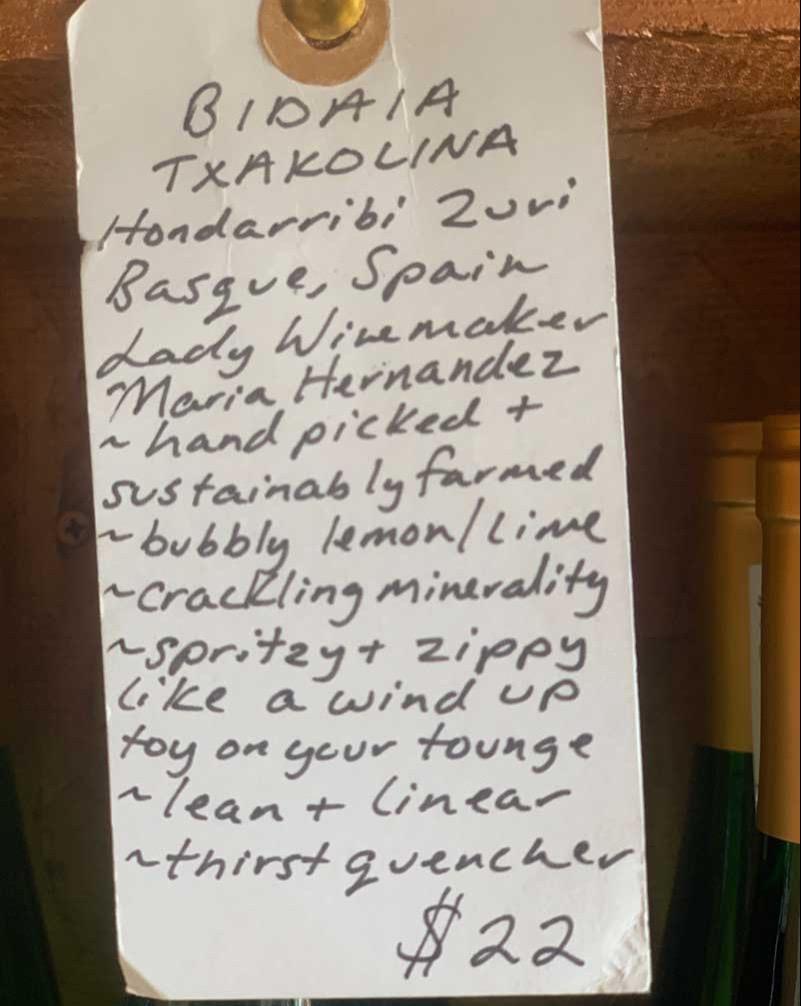 BIDAIA
TXAKOLINA
Hondarribi Zuri
Basque, Spain
Lady Winemaker
Maria Hernandez
~ hand picked +
sustainably farmed
~bubbly lemon/Lime
~crackling minerality
~spritzy+ zippy
like a wind up
toy on your tounge
~lean + linear
~thirst quencher
$22